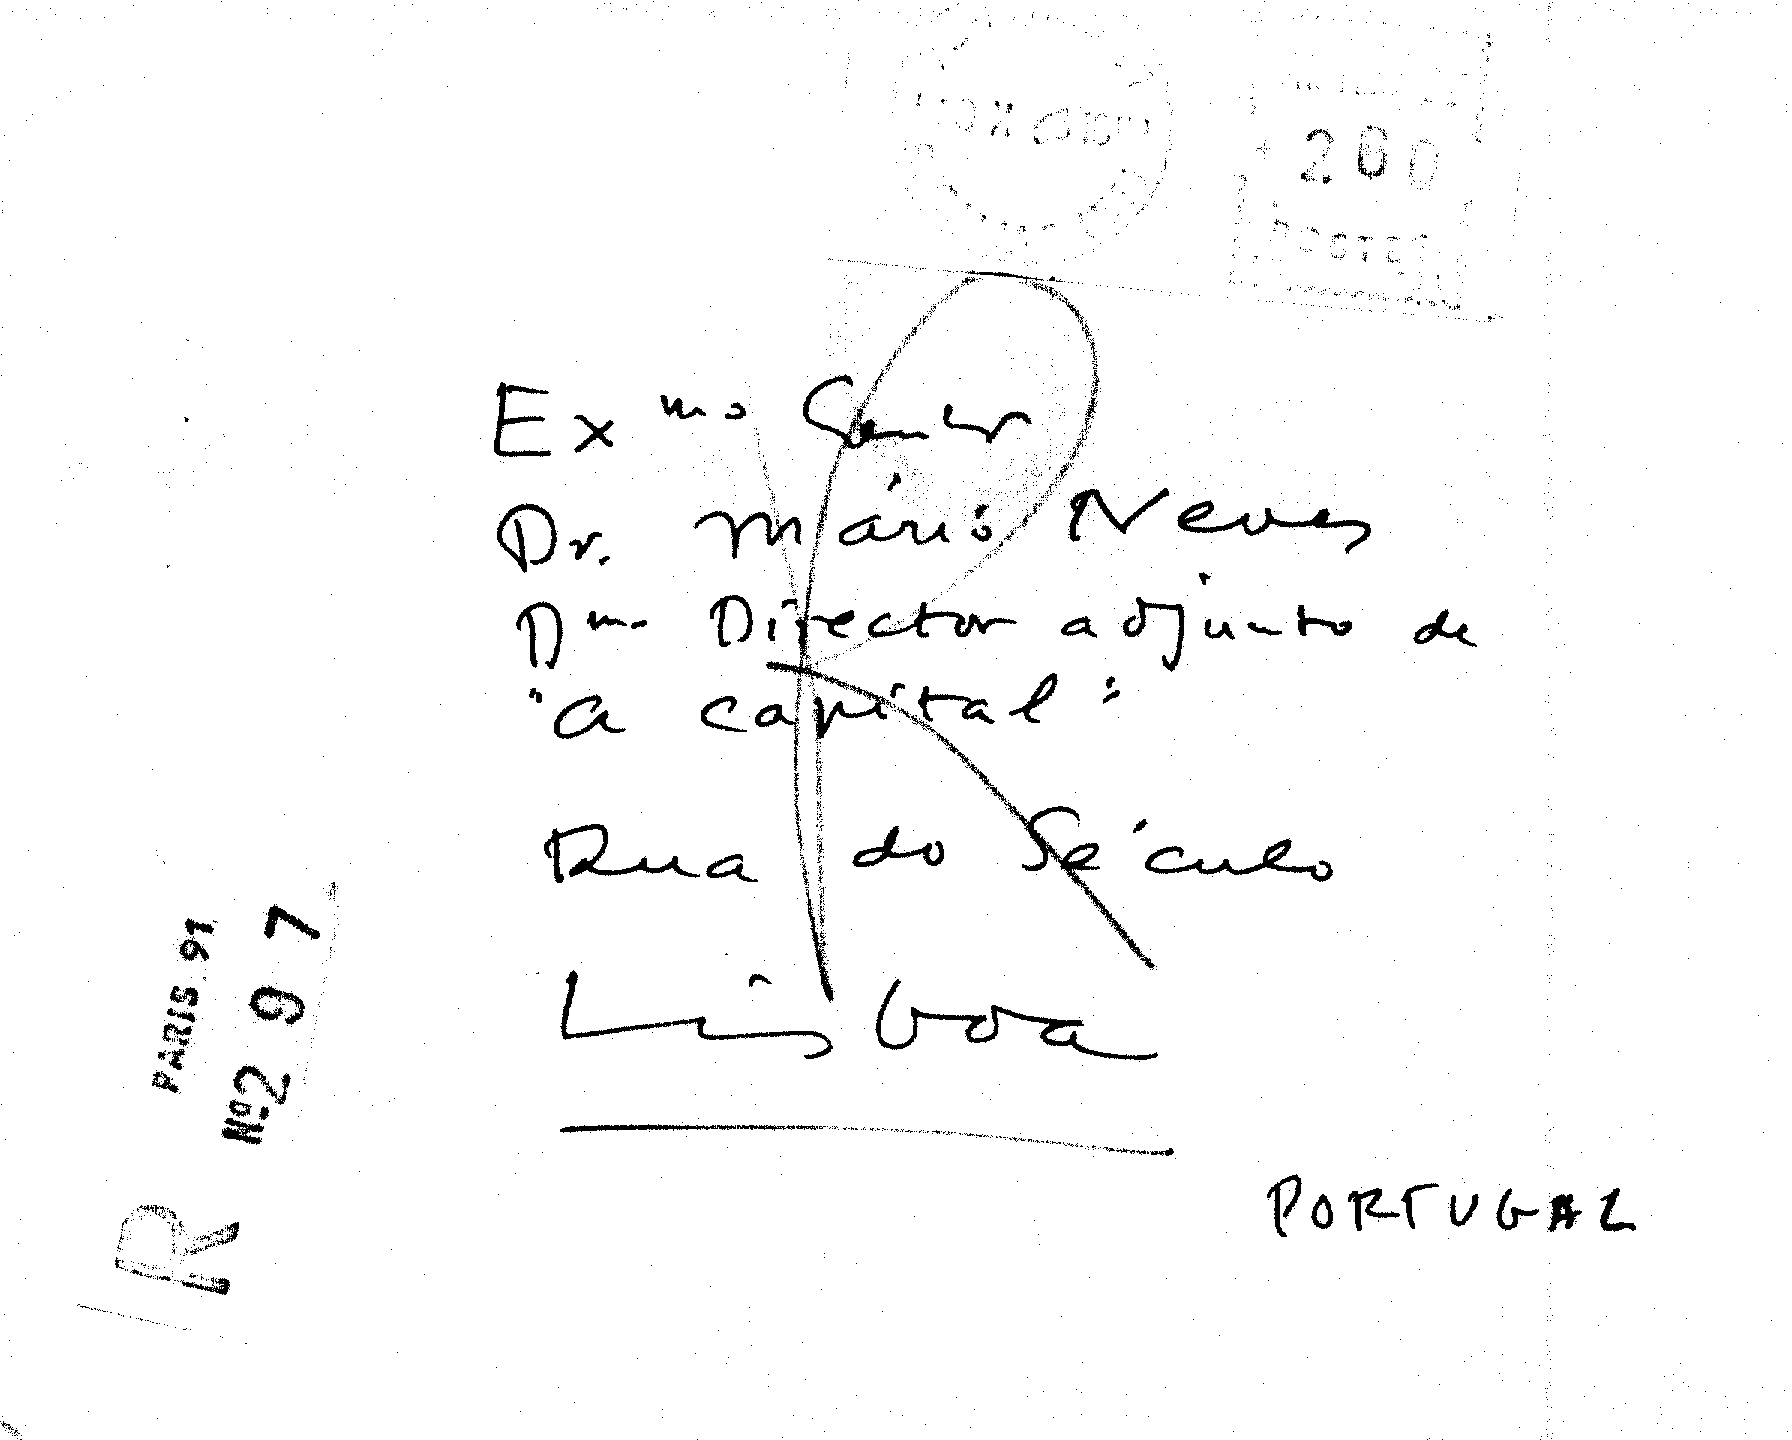 200
POSTES
Ex mo Senhor
Dr. Mário Neves
Dmo Director adjunto de
"A Capital"
Rua do Século
Lisboa
PORTUGAL
R PARIS 91
Nº 297
R